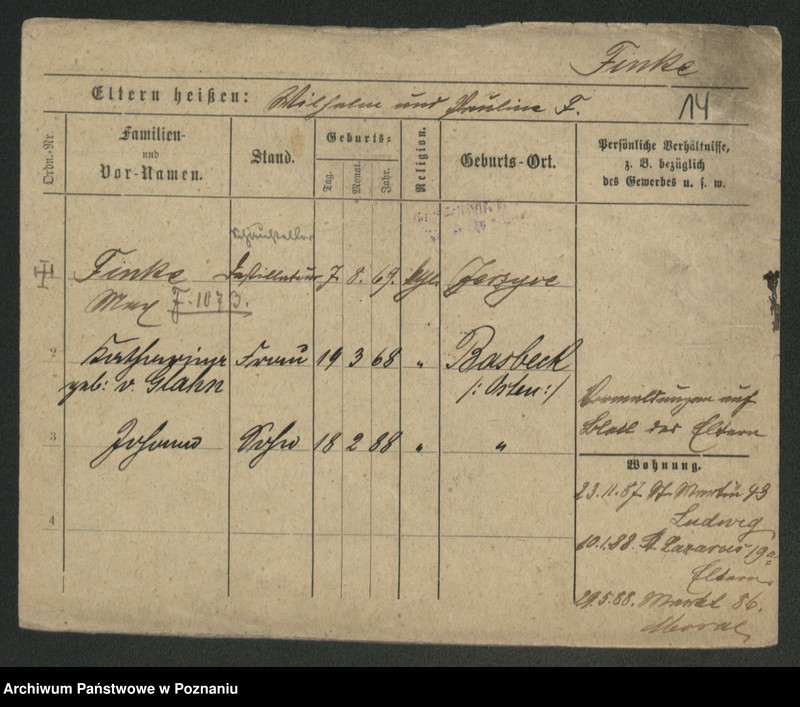 Finke
Eltern heißen: Wilhelm und Pauline F.
14
Ordn.-Nr.
Familien-
und
Vor-Namen.
Stand.
Geburts-
Tag.
Monat.
Jahr.
Religion.
Geburts-Ort.
Persönliche Verhältnisse,
z. B. bezüglich
des Gewerbes u. s. w.
Finke Destillateur 7. 8. 69. Jerzyce
Max F. 1073.
2 Katharina Frau 19 3 68 " Basbeck
geb: v. Glahn /: Osten :/
3 Johann Sohn 18 2 88 " "
4
Vermeldungen auf
Blatt der Eltern
Wohnung.
23.11.87. St. Martin 43
Ludwig
10.1.88. St. Lazarus 19a
Eltern
29.5.88. Markt 86.
Archiwum Państwowe w Poznaniu